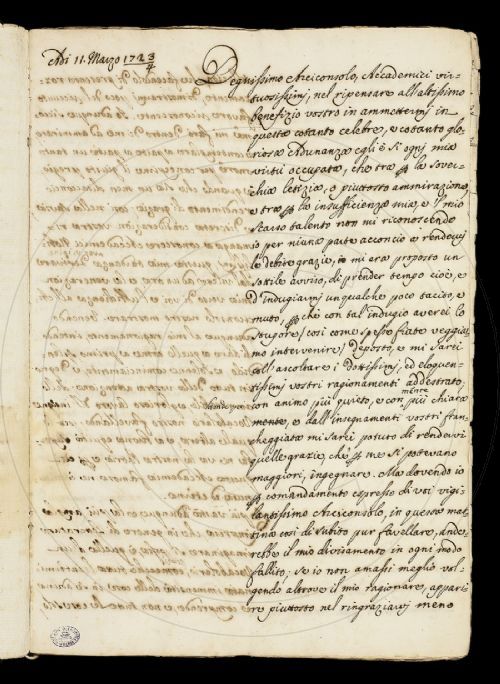 Adì 11. Marzo 1723/4
Degnissimo Arciconsolo, Accademici vir-
tuosissimj, nel ripensare all'altissimo
benefizio vostro in ammettermj in
questa cotanto celebre, e cotanto glo-
riosa Adunanza egli è sì ognj mia
virtù occupata, che tra p la sover-
chia letizia, e piuttosto ammirazione,
e tra p la insufficienza mia, e 'l mio
scarso talento non mi riconoscendo
io per niuna parte acconcio a rendervj
le debite grazie, io mi era proposto un
sottile avviso, di prender tempo cioè, e
d'indugiarmj un qualche poco tacito, e
muto, p chè con tal'indugio averei lo
stupore (così come spesse fiate veggia-
mo intervenire) deposto, e mi sarei
coll'ascoltare i dottissimj, ed eloquen-
tissimj vostri ragionamenti addestrato,
con animo più quieto, e con mente più chiara
mente, e dall'insegnamenti vostri fran-
cheggiato mi sarei potuto di rendervi
quelle grazie, chè p me si potevano
maggiori, ingegnare. Ma dovendo io
p comandamento espresso di voi vigi-
lantissimo Arciconsolo, in questa mat-
tina così di subito pur favellare, ande-
rebbe il mio divisamento in ogni modo
fallito; se io non amassi meglio vol-
gendo altrove il mio ragionare, appari-
re piuttosto nel ringraziarvj meno